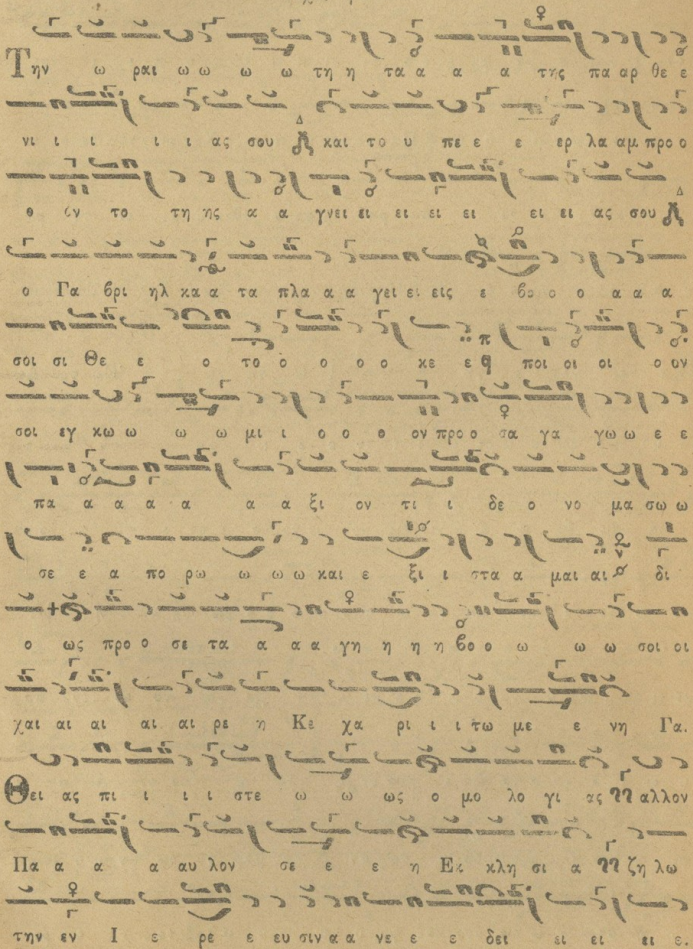 Την ω ραι ω ω ω ω τη η τα α α α α της πα αρ θε ε
νι ι ι ι ι ι ας σου και το υ πε ε ε ερ λα αμ προ ο
ο ον το τη ης α α γνει ει ει ει ει ει ει ας σου
ο Γα βρι ηλ κα α τα πλα α α γει ει εις ε βο ο ο α α α
σοι σι Θε ε ο το ο ο ο ο κε ε ποι οι οι ο ον
σοι εγ κω ω ω ω μι ι ο ο ο ον προ ο σα γα γω ω ε ε
πα α α α α α α ξι ον τι ι δε ο νο μα σω ω
σε ε α πο ρω ω ω ω και ε ξι ι στα α μαι αι δι
ο ως προ ο σε τα α α α γη η η η βο ο ω ω ω σοι οι
χαι αι αι αι αι ρε η Κε χα ρι ι ι τω με ε νη Γα.
Θει ας πι ι ι ι στε ω ω ως ο μο λο γι ας αλλον
Πα α α α αυ λον σε ε ε η Εκ κλη σι α ζη λω
την εν Ι ε ρε ε ευ σιν α α νε ε ε δει ει ει ει ε.